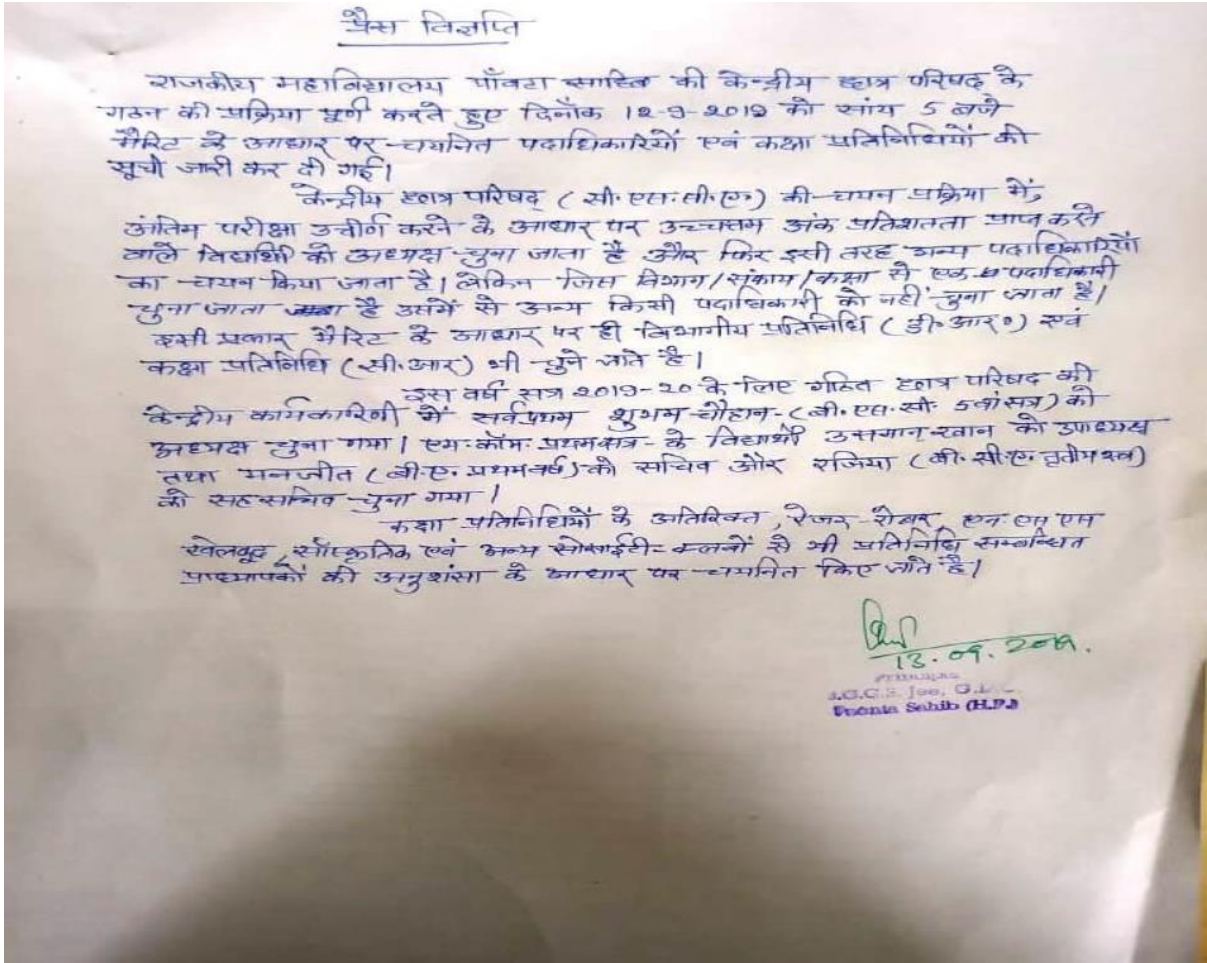 प्रैस विज्ञप्ति
राजकीय महाविद्यालय पाँवटा साहिब की केन्द्रीय छात्र परिषद के
गठन की प्रक्रिया पूर्ण करते हुए दिनाँक 12-9-2019 को सांय 5 बजे
मैरिट के आधार पर चयनित पदाधिकारियों एवं कक्षा प्रतिनिधियों की
सूची जारी कर दी गई।
केन्द्रीय छात्र परिषद् (सी.एस.सी.ए.) की चयन प्रक्रिया में,
अंतिम परीक्षा उत्तीर्ण करने के आधार पर उच्चत्तम अंक प्रतिशतता प्राप्त करने
वाले विद्यार्थी को अध्यक्ष चुना जाता है और फिर इसी तरह अन्य पदाधिकारियों
का चयन किया जाता है। लेकिन जिस विभाग/संकाय/कक्षा से एक पदाधिकारी
चुना जाता है उसमें से अन्य किसी पदाधिकारी को नहीं चुना जाता है।
इसी प्रकार मैरिट के आधार पर ही विभागीय प्रतिनिधि (डी॰आर॰) एवं
कक्षा प्रतिनिधि (सी.आर) भी चुने जाते है।
इस वर्ष सत्र 2019-20 के लिए गठित छात्र परिषद की
केन्द्रीय कार्यकारिणी में सर्वप्रथम शुभम चौहान (बी.एस.सी. 5वां सत्र) को
अध्यक्ष चुना गया। एम.कॉम. प्रथम सत्र के विद्यार्थी खान को उपाध्यक्ष
तथा मनजीत (बी.ए. प्रथम वर्ष) को सचिव और रजिया (बी.सी.ए. तृतीय सत्र)
को सह सचिव चुना गया।
कक्षा प्रतिनिधियों के अतिरिक्त, रेंजर रोवर, एन.एस एस
खेलकूद, साँस्कृतिक एवं अन्य सोसाईटी क्लबों से भी प्रतिनिधि सम्बन्धित
प्राध्यापकों की अनुशंसा के आधार पर चयनित किए जाते है।
13.09.2019.
Principal
Sahib (H.P.)